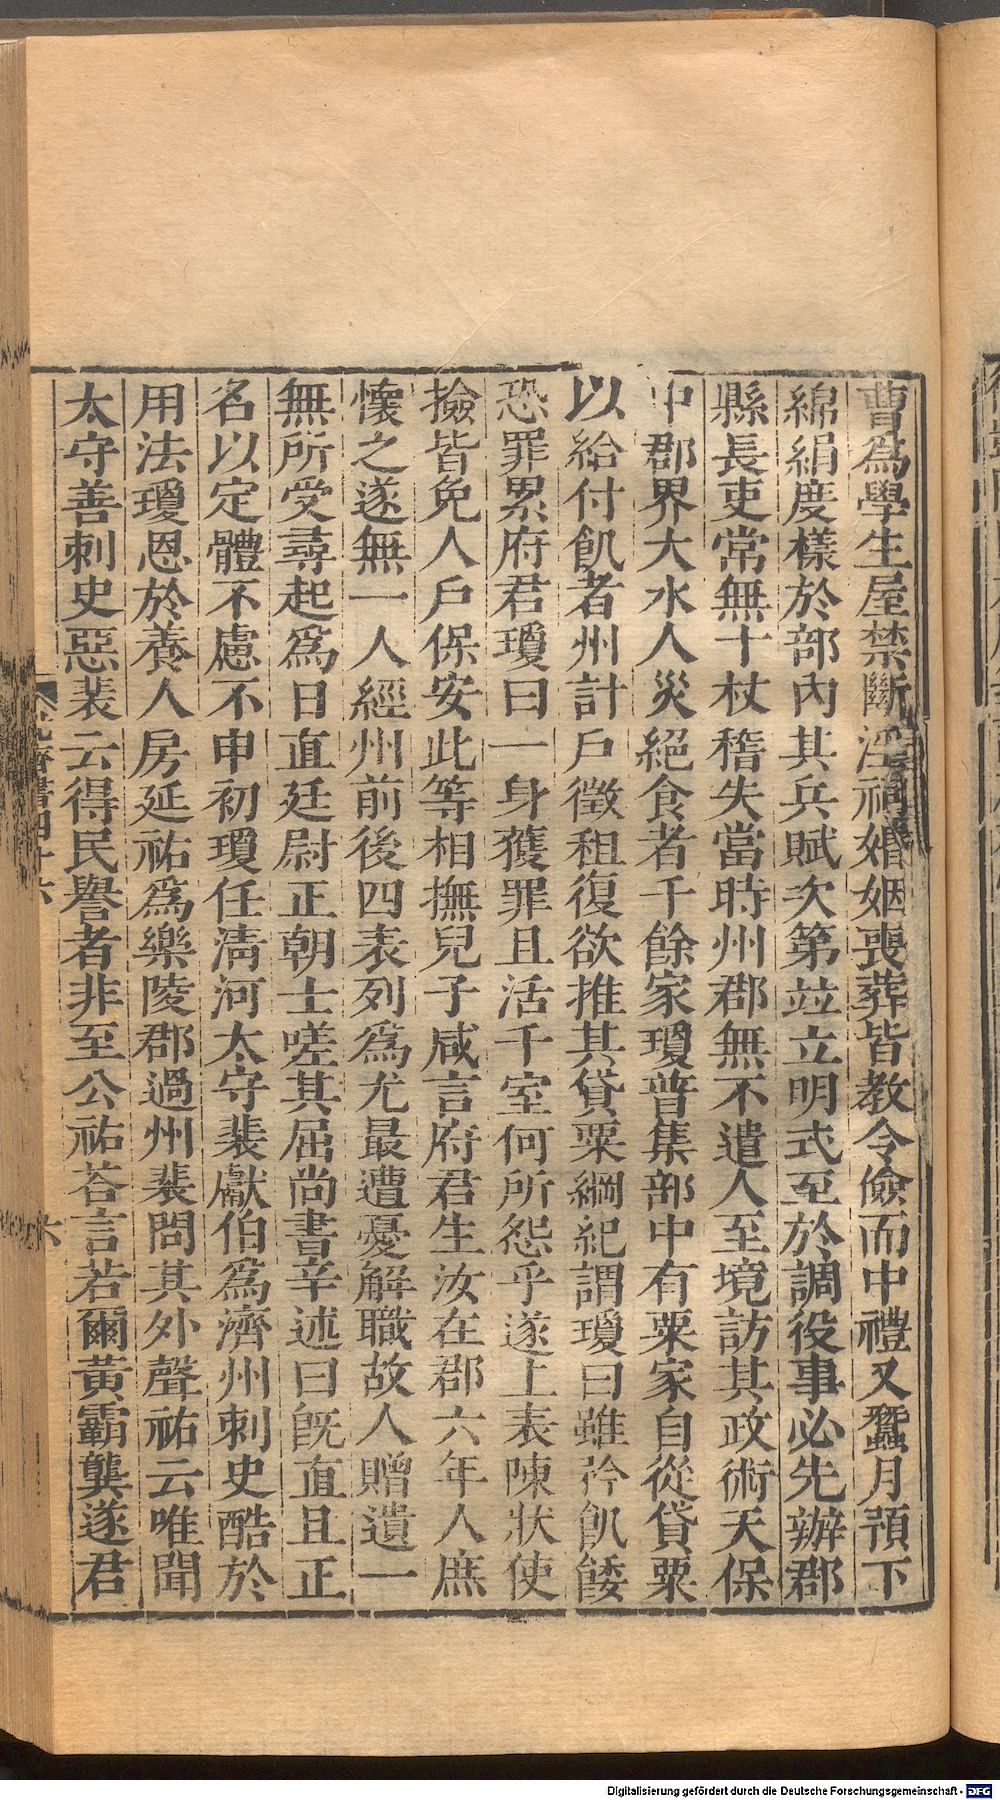 曹爲學生屋禁斷淫祠婚姻喪葬皆教令儉而中禮又蠶月預下
綿絹度樣於部內其兵賦次第竝立明式至於調役事必先辦郡
縣長吏常無十杖稽失當時州郡無不遣人至境訪其政術天保
中郡界大水人災絕食者千餘家瓊普集部中有粟家自從貸粟
以給付飢者州計戶徵租復欲推其貸粟綱紀謂瓊曰雖矜飢餧
恐罪累府君瓊曰一身獲罪且活千室何所怨乎遂上表陳狀使
撿皆免人戶保安此等相撫兒子咸言府君生汝在郡六年人庶
懷之遂無一人經州前後四表列爲尤最遭憂解職故人贈遺一
無所受尋起爲日直廷尉正朝士嗟其屈尚書辛述曰旣直且正
名以定體不慮不申初瓊任淸河太守裴獻伯爲濟州刺史酷於
用法瓊恩於養人房延祐爲樂陵郡過州裴問其外聲祐云唯聞
太守善刺史惡裴云得民譽者非至公祐荅言若爾黃霸龔遂君
北齊書四十六
六
Digitalisierung gefördert durch die Deutsche Forschungsgemeinschaft - DFG